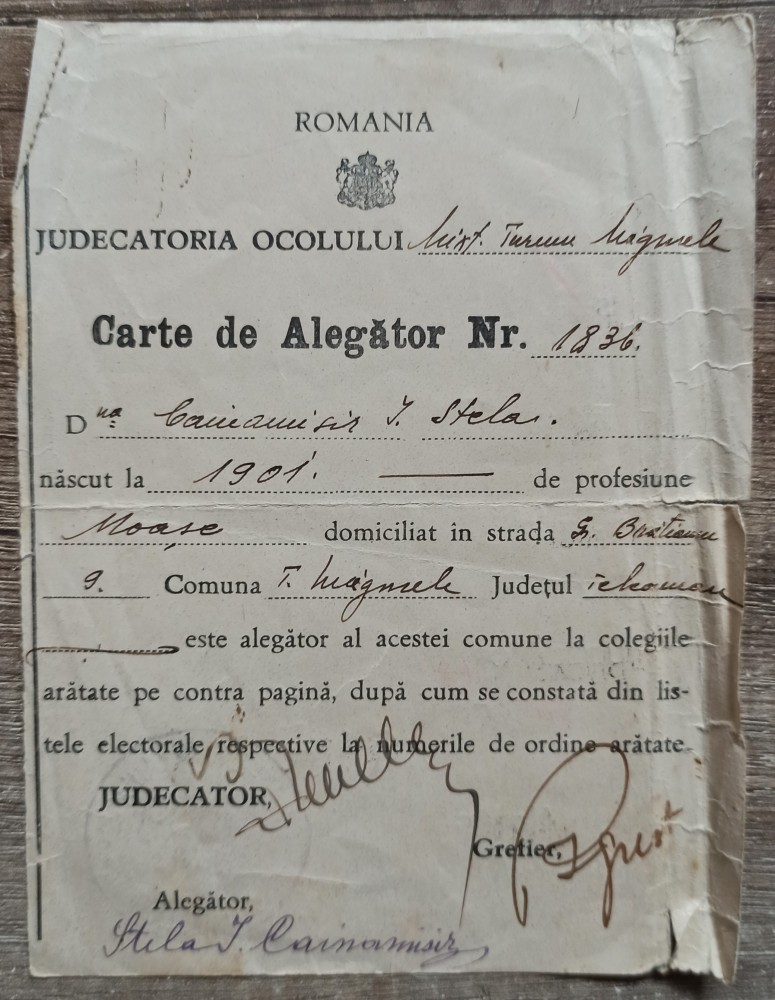 ROMANIA
JUDECATORIA OCOLULUI Mixt. Turnu Măgurele
Carte de Alegător Nr. 1836.
D na Cainamisir I. Stela.
născut la 1901. — de profesiune
Moașe domiciliat în strada G. Brătianu
9. Comuna T. Măgurele Județul Teleorman
este alegător al acestei comune la colegiile
arătate pe contra pagină, după cum se constată din lis-
tele electorale respective la numerile de ordine arătate
JUDECATOR,
Grefier,
Alegător,
Stela I. Cainamisir